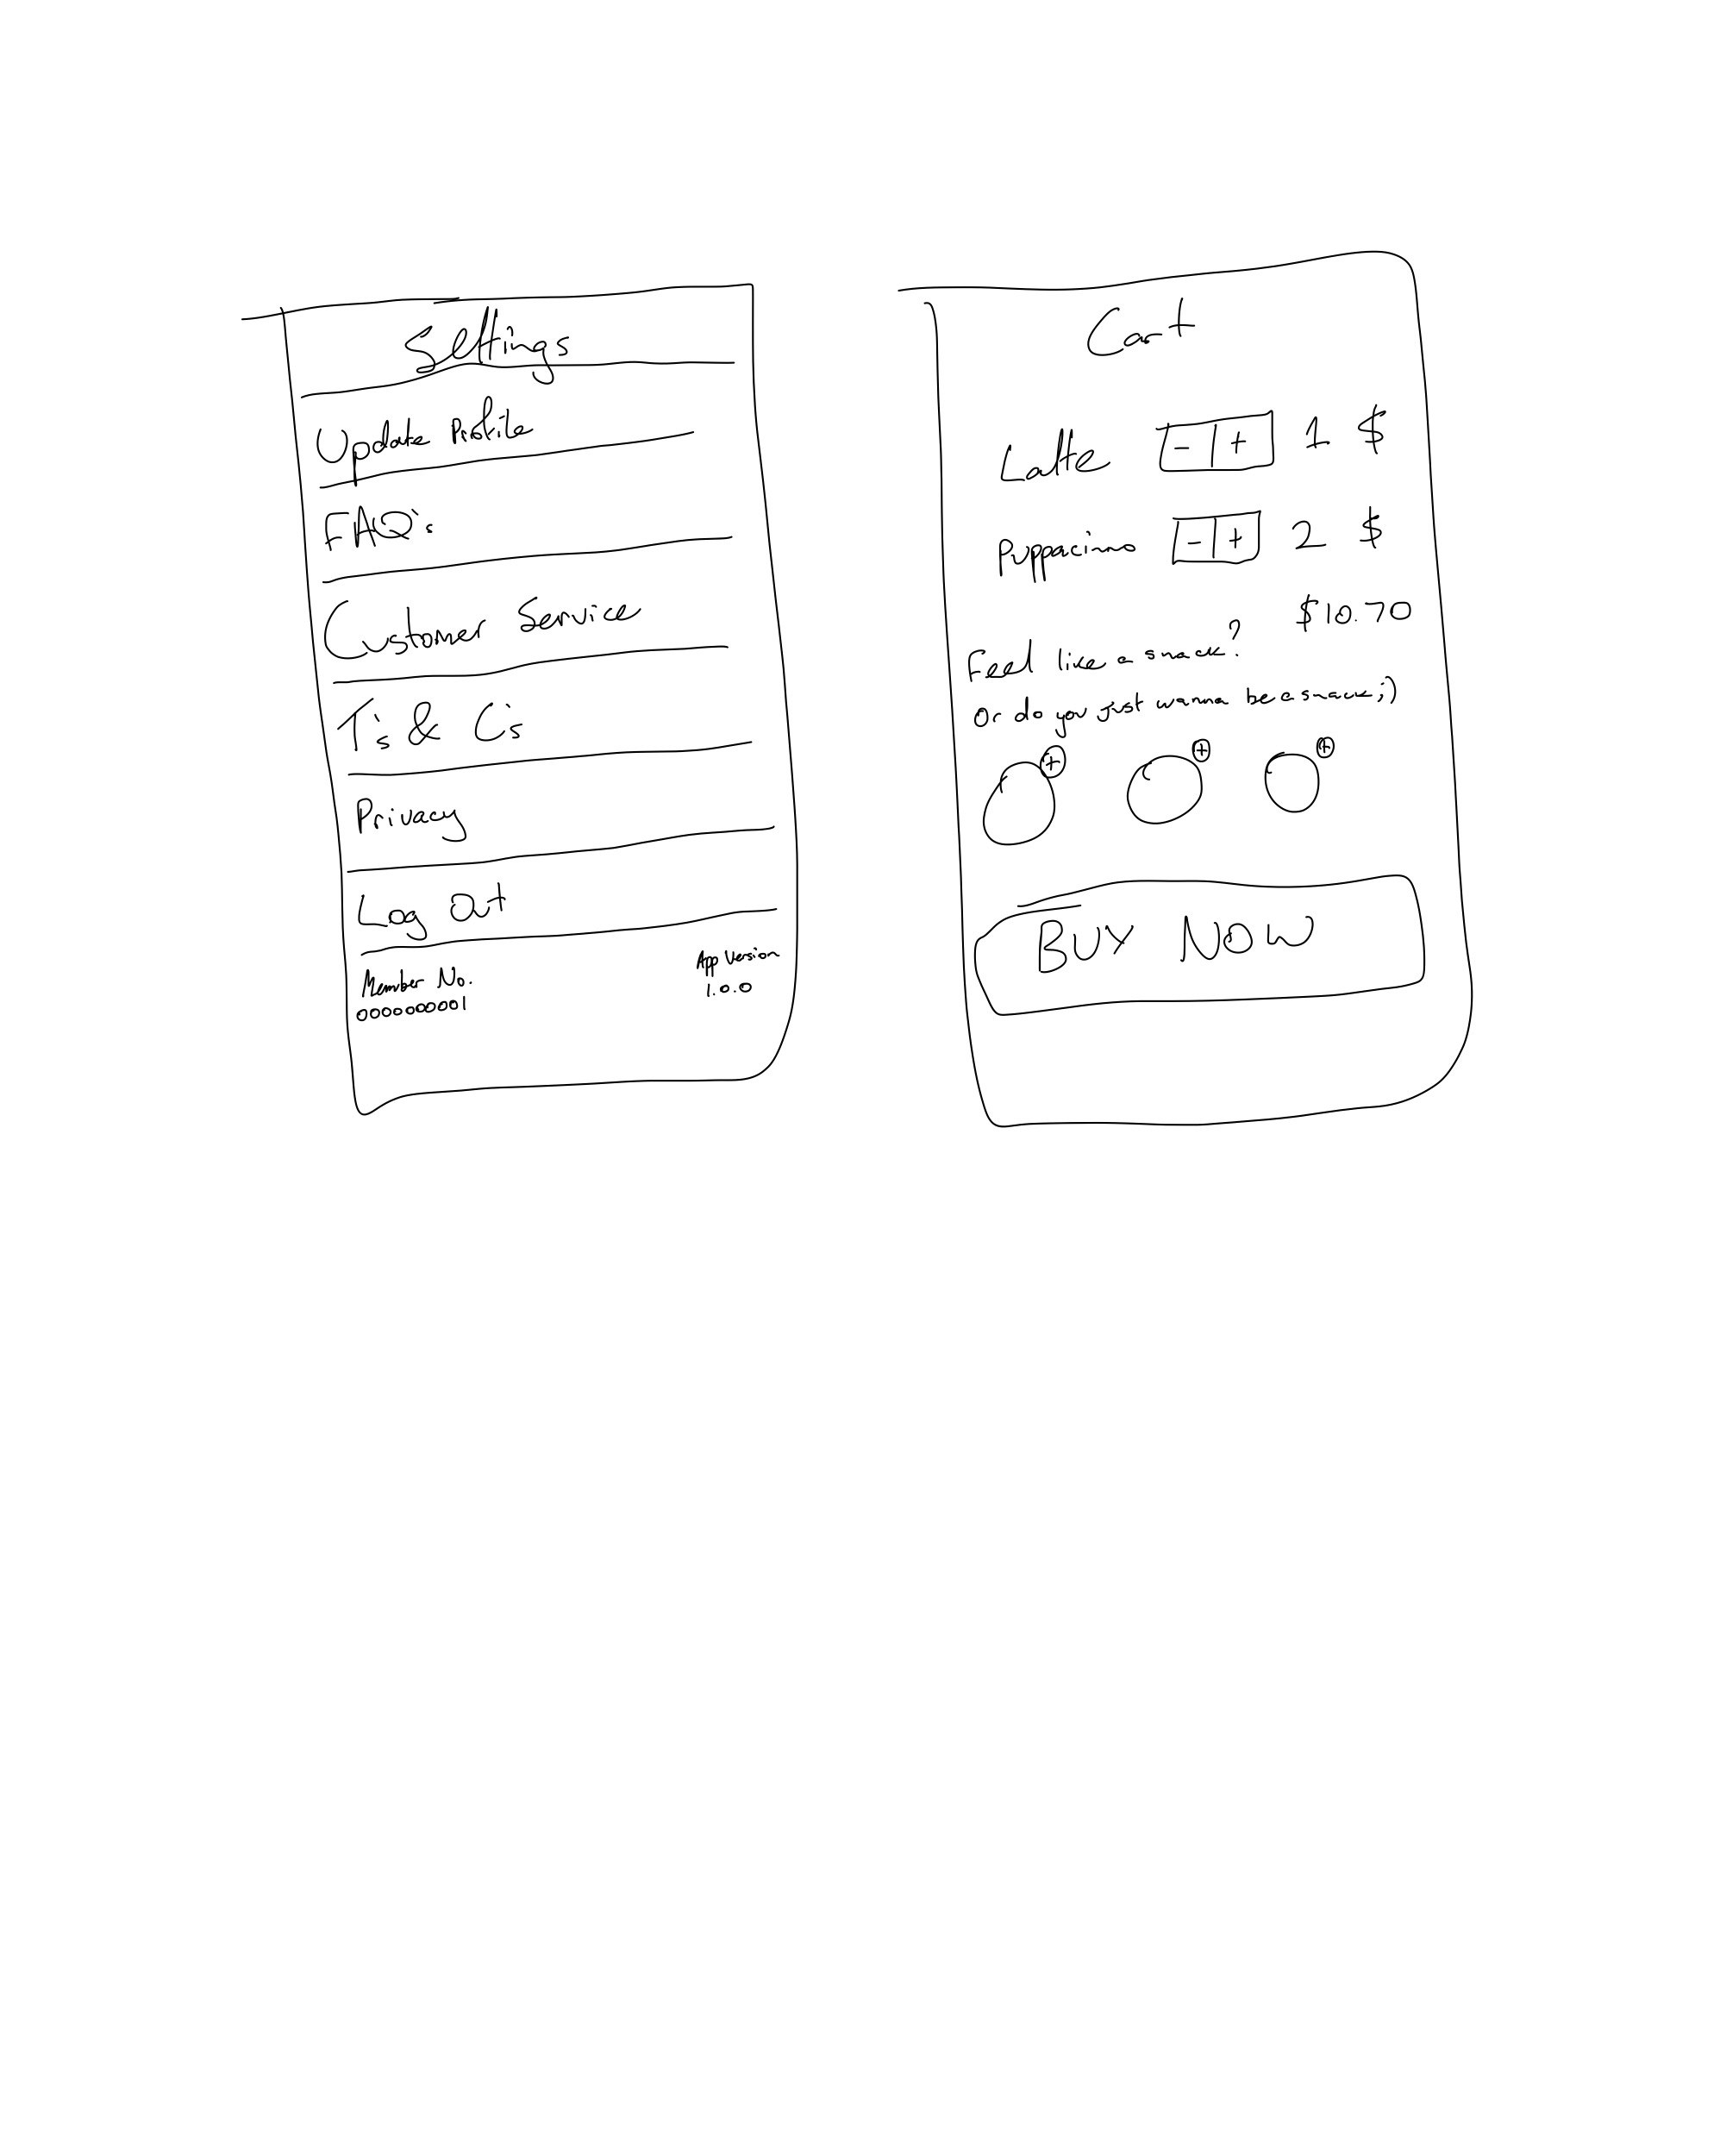 Settings
Update Profile
FAQ's
Customer Service
T's & C's
Privacy
Log Out
Member No.
0000000001
App Version
1.0.0
Cart
Latte - + 1 $
Puppacinno - + 2 $
$10.70
Feel like a snack?
Or do you just wanna be a snack ;)
+ + +
BUY NOW